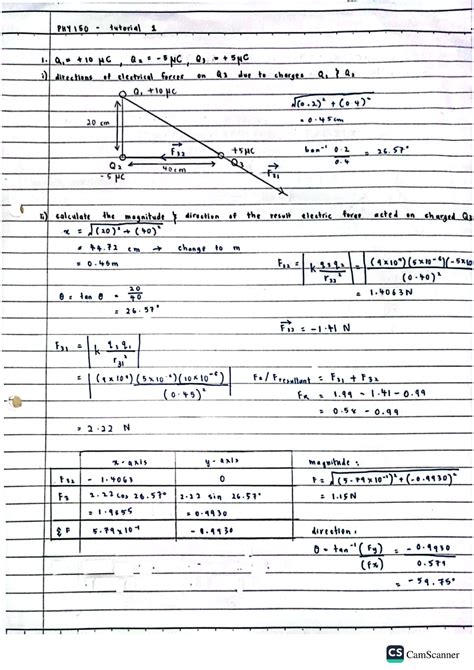 PHY150 - tutorial 1
1. Q₁ = +10 μC , Q₂ = -5 μC , Q₃ = +5 μC
i) directions of electrical forces on Q3 due to charges Q₁ & Q₂
Q₁ +10 μC
√(0.2)² + (0.4)²
= 0.45cm
20 cm
tan⁻¹ 0.2 / 0.4 = 26.57°
F₃₂
+5μC
Q₃
Q₂
40cm
F₃₁
-5 μC
ii) calculate the magnitude & direction of the result electric force acted on charged Q₃
x = √(20)² + (40)²
= 44.72 cm → change to m
= 0.45m
F₃₂ = | k q₃q₂ / r₃₂² | = | (9x10⁹)(5x10⁻⁶)(-5x10 / (0.40)² |
= 1.4063N
θ = tan θ = 20 / 40
= 26.57°
F₃₂ = -1.41 N
F₃₁ = | k q₃q₁ / r₃₁² |
= | (9x10⁹)(5x10⁻⁶)(10x10⁻⁶) / (0.45)² |
= 2.22 N
Fᵣ/Fresultant = F₃₁ + F₃₂
Fᵣ = 1.99 - 1.41 - 0.99
= 0.58 - 0.99
x-axis y-axis
F₃₂ - 1.4063 0
F₃ 2.22 cos 26.57° 2.22 sin 26.57°
= 1.9855 = 0.9930
ΣF 5.79x10⁻¹ -0.9930
magnitude :
F = √(5.79x10⁻¹)² + (-0.9930)²
= 1.15N
direction :
θ = tan⁻¹ (Fy) / (fx) = -0.9930 / 0.579
= -59.75°
CS CamScanner